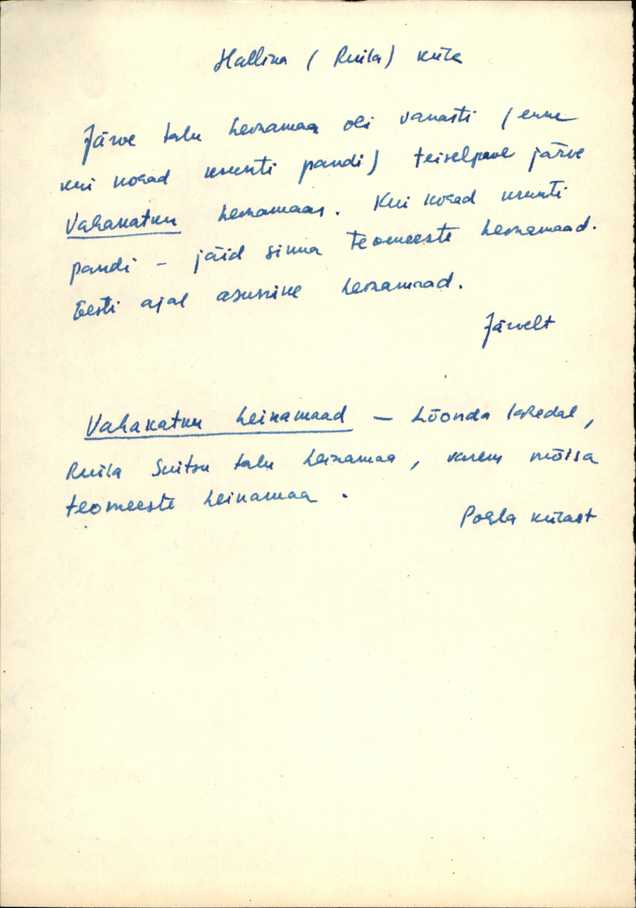 Hallina (Ruila) küla
Järve talu heinamaa oli vanasti (enne
kui kohad krunti pandi) teiselpool järve
Vahakatku heinamaas. Kui kohad krunti
pandi – jäid sinna teomeeste heinamaad.
Eesti ajal asunike heinamaad.
Järvelt
Vahakatku heinamaad – Lõonda lahedal,
Ruila Suitsu talu heinamaa, varem mõisa
teomeeste heinamaa.
Pogla külast